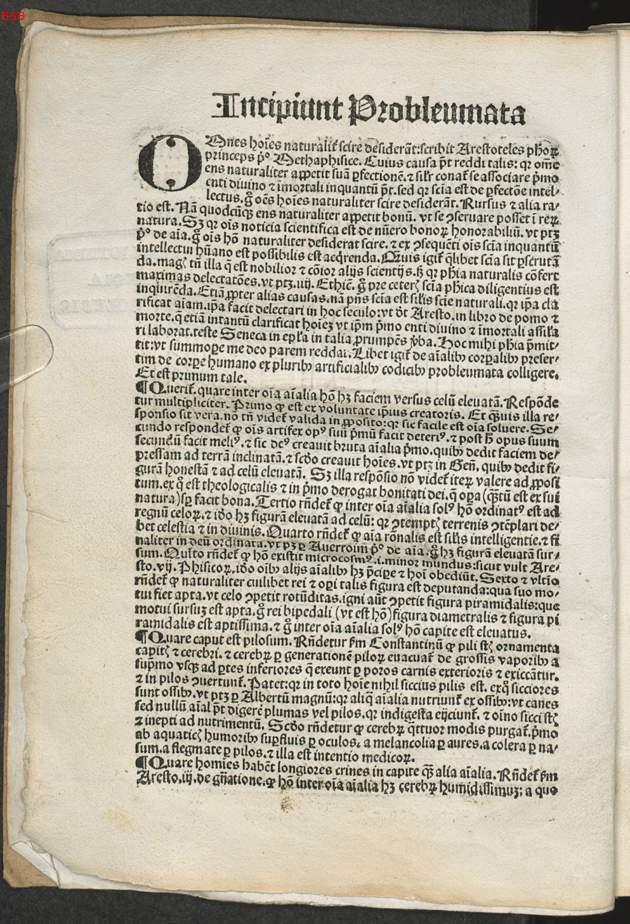 658
Incipiunt Probleumata
OMnes hoīes naturalit̄ scire desiderāt: scribit Arestoteles ph̄oꝝ
princeps p̄º Methaphisice. Cuius causa p̄t reddi talis: qꝛ om̄e
ens naturaliter appetit suā ꝑfectionē. ⁊ sil̄r conat᷑ se associare p̄mo
enti diuino ⁊ īmortali inquantū p̄t. sed qꝛ scia est de ꝑfectōe intel⸗
lectus. g̊ oēs hoīes naturaliter scire desiderāt. Rursus ⁊ alia ra⸗
tio est. Nā quodcūqꝫ ens naturaliter appetit bonū. vt se ꝯseruare posset ī reꝝ
natura. Sꝫ qꝛ oīs noticia scientifica est de nūero bonoꝝ honorabiliū. vt ptꝫ
p̄º de aīa. g̊ oīs hō naturaliter desiderat scire. ⁊ ex ꝯsequēti oīs scia inquantū
intellectui hūano est possibilis est acq̄renda. Quis igit᷑ q̄libet scia sit ꝑscrutā
da. magꝭ tn̄ illa q̄ est nobilior ⁊ cōior alijs scientijs. hꝫ qꝛ ph̄ia naturalis cōfert
maximas delectatōes. vt ptꝫ .iiij. Ethic̄. g̊ p̄e ceterꝭ scia ph̄ica diligentius est
inquirēda. Etiā ꝓpter alias causas. nā p̄ns scia est sil̄is scīe naturali. qꝛ ip̄a cla
rificat aīam. ip̄a facit delectari in hoc seculo: vt dt̄ Aresto. in libro de pomo ⁊
morte. q̄ etiā intantū clarificat hoīeꝫ vt ip̄m p̄mo enti diuino ⁊ īmortali assil̄a
ri laborat. teste Seneca in ep̄l̄a in talia ꝓrumpēs v̄ba. Hoc mihi ph̄ia ꝓmit⸗
tit: vt summope me deo parem reddat. Libet igit᷑ de aīalibꝰ corꝑalibꝰ preser⸗
tim de corꝑe humano ex pluribꝰ artificialibꝰ codicibꝰ probleumata colligere.
Et est primum tale.
¶ Querit᷑. quare inter oīa aīalia hō hꝫ faciem versus celū eleuatā. Respōde
tur multipliciter. Primo ꝙ est ex voluntate ip̄ius creatoris. Et q̄uis illa re⸗
sponsio sit vera. nō tn̄ videt᷑ valida in ꝓposito: qꝛ sic facile est oīa soluere. Se⸗
cundo respondet᷑ ꝙ oīs artifex opꝰ suū p̄mū facit deteriꝰ. ⁊ post hͦ opus suum
secundū facit meliꝰ. ⁊ sic deꝰ creauit bruta aīalia p̄mo. quibꝰ dedit faciem de⸗
pressam ad terrā inclinatā. ⁊ scd̄o creauit hoīes. vt ptꝫ in Gen̄. quibꝰ dedit fi⸗
gurā honestā ⁊ ad celū eleuatam. Sꝫ illa respōsio nō videt᷑ iterꝝ valere ad ꝓposi
tum. ex q̊ est theologicalis ⁊ in p̄mo derogat bonitati dei. q̄ oꝑa (q̄stū est ex sui
natura) sꝑ facit bona. Tertio rn̄det᷑ ꝙ inter oīa aīalia solꝰ hō ordinatꝰ est ad
regnū celoꝝ. ⁊ iō hꝫ figurā eleuatā ad celū: qꝛ ꝯtemptꝭ terrenis ꝯtēplari de⸗
bet celestia ⁊ in diuinis. Quarto rn̄det᷑ ꝙ aīa rōnalis est sil̄is intelligentie. ⁊ fi
naliter in deū ordinata. vt ptꝫ ꝑ Auerroim p̄º de aīa. g̊ hꝫ figurā eleuatā sur⸗
sum. Quīto rn̄det᷑ ꝙ hō existit microcosmꝰ. i. minor mundus: sicut vult Are⸗
sto. vij. Phisicoꝝ. iō oībꝰ alijs aīalibꝰ hꝫ p̄cipe ⁊ hoī obediūt. Sexto ⁊ vltīo
rn̄det᷑ ꝙ naturaliter cuilibet rei ⁊ oꝑi talis figura est deputanda: qua suo mo⸗
tui fiet apta. vt celo ꝯpetit rotūditas. igni aūt ꝯpetit figura piramidalis: que
motui sursuꝫ est apta. g̊ rei bipedali (vt est hō) figura diametralis ⁊ figura pi
ramidalis est aptissima. ⁊ g̊ inter oīa aīalia solꝰ hō capite est eleuatus.
¶ Quare caput est pilosum. Rn̄detur ẜm Constantinū ꝙ pili st̄ ornamenta
capitꝭ ⁊ cerebri. ⁊ cerebꝝ ꝑ generationē piloꝝ euacuat᷑ de grossis vaporibꝰ a
sup̄mo vsqꝫ ad ꝑtes inferiores q̄ exeunt ꝑ poros carnis exterioris ⁊ exiccātur.
⁊ in pilos ꝯuertunt᷑. Patet: qꝛ in toto hoīe nihil siccius pilis est. exq̊ sicciores
sunt ossibꝰ. vt ptꝫ ꝑ Albertū magnū: qꝛ aliq̄ aīalia nutriunt᷑ ex ossibꝰ: vt canes
sed nullū aīal p̄t digere plumas vel pilos. qꝛ indigesta eijciunt᷑. ⁊ oīno sicci st̄
⁊ inepti ad nutrimentū. Scd̄o rn̄detur ꝙ cerebꝝ q̊ttuor modis purgat᷑. p̄mo
ab aquaticꝭ humoribꝰ suꝑfluis ꝑ oculos. a melancolia ꝑ aures. a colera ꝑ na⸗
sum. a flegmate ꝑ pilos. ⁊ illa est intentio medicoꝝ.
¶ Quare homīes habēt longiores crines in capite q̄ꝫ alia aīalia. Rn̄det᷑ ẜm
Aresto. iij. de gn̄atione. ꝙ hō inter oīa aīalia hꝫ cerebꝝ humidissimuꝫ: a quo